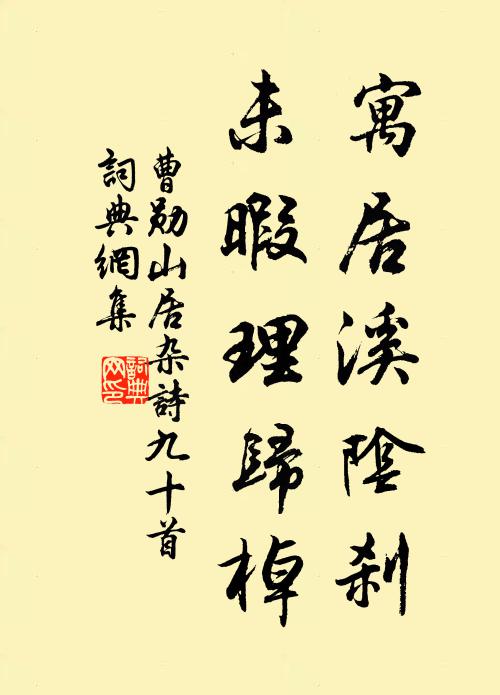 寓居溪陰刹
未暇理歸棹
曹勛山居杂詩九十首
詞典網集
詞典网印